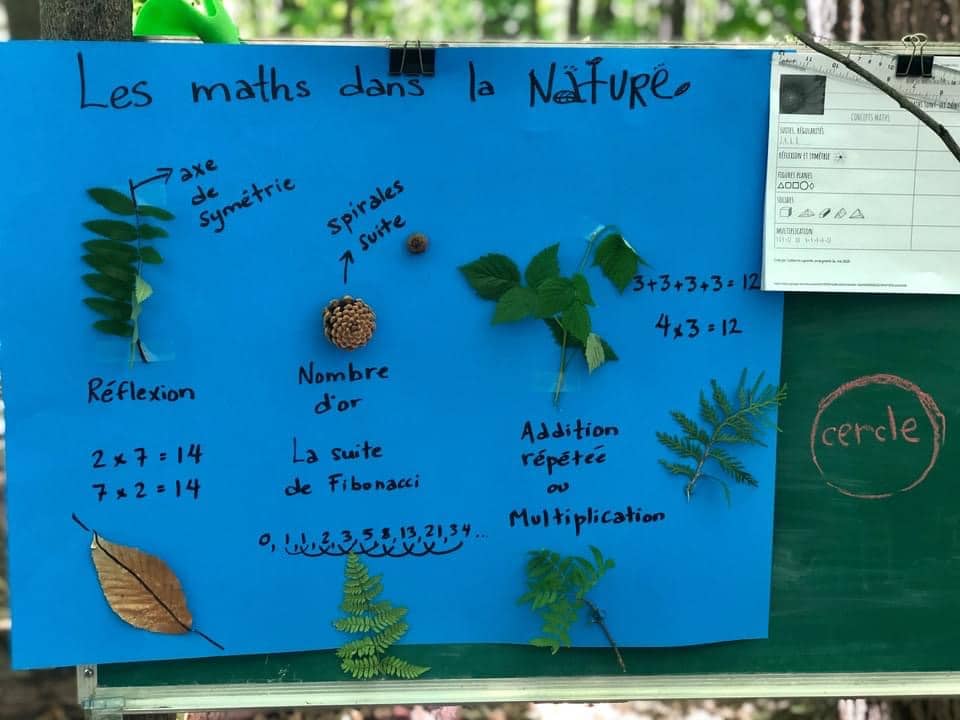 Les maths dans la NATURE
axe
de
symétrie
spirales
suite
3+3+3+3=12
4x3=12
Réflexion
2x7=14
7x2=14
Nombre
d'or
La suite
de Fibonacci
0, 1, 1, 2, 3, 5, 8, 13, 21, 34...
Addition
répétée
ou
Multiplication
CONCEPTS MATHS
SUITES, RÉGULARITÉS
RÉFLEXION ET SYMÉTRIE
FIGURES PLANES
SOLIDES
MULTIPLICATION
cercle